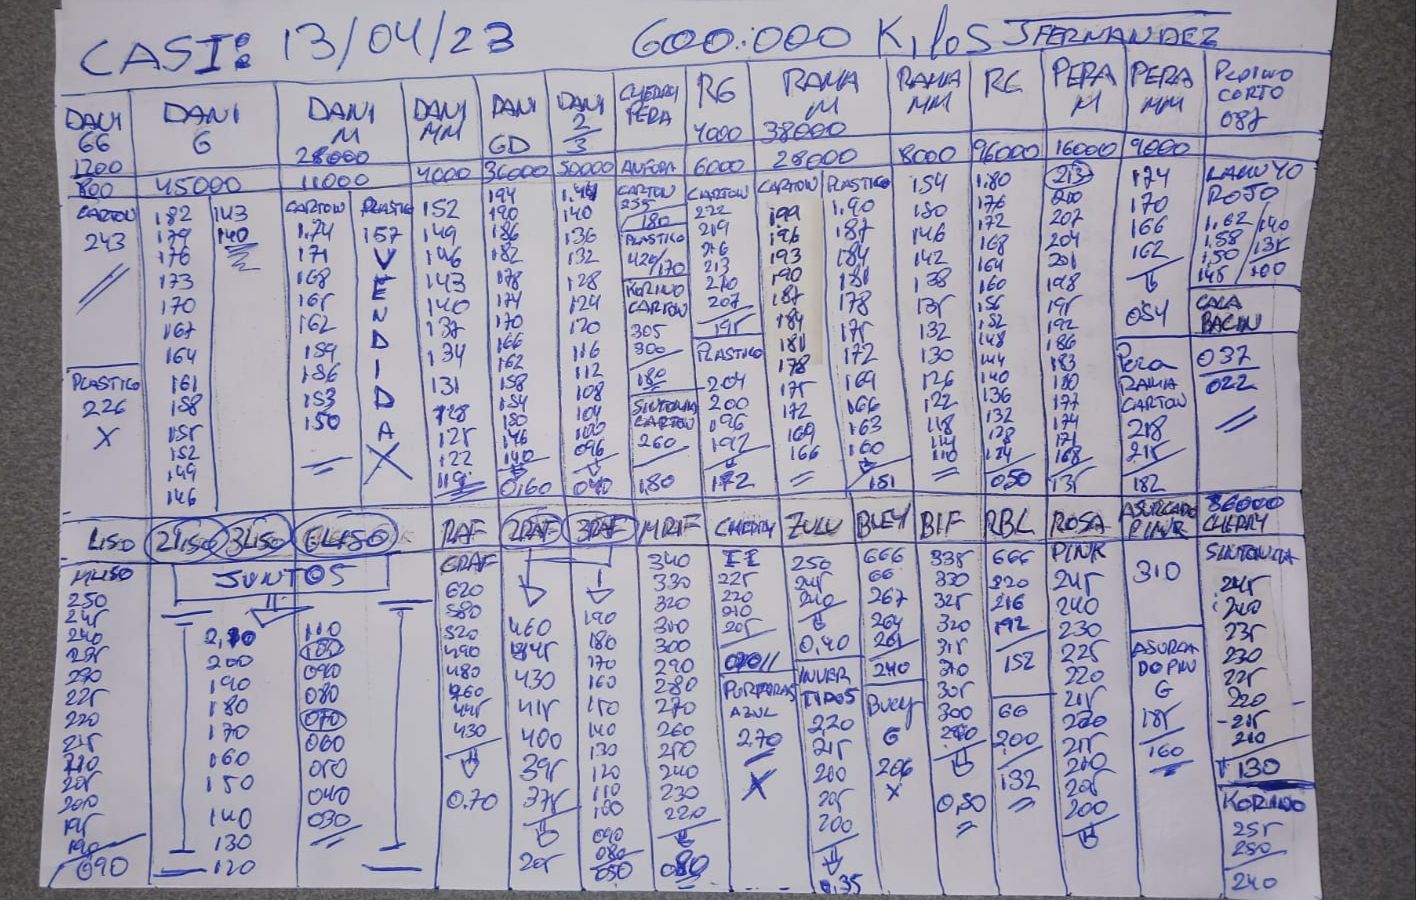 CASI: 13/04/23 600.000 Kilos JFERNANDEZ
DANI GG
1200
800
CARTON
243
PLASTICO
226
X
DANI G
45000
182
179
176
173
170
167
164
161
158
155
152
149
146
143
140
DANI M
28000
11000
CARTON
1.74
171
168
165
162
159
156
153
150
PLASTICO
157
VENDIDA
X
DANI MM
4000
152
149
146
143
140
137
134
131
128
125
122
119
DANI GD
36000
194
190
186
182
178
174
170
166
162
158
154
150
146
140
0,160
DANI 2/3
50000
1.44
140
136
132
128
124
120
116
112
108
104
100
096
040
CHERRY PERA
ANFORA
CARTON
235
180
PLASTICO
420/170
KORINO
CARTON
305
300
180
SINTONIA
CARTON
260
180
RG
4000
6000
CARTON
222
219
216
213
210
207
195
PLASTICO
204
200
196
192
172
RAMA M
38000
28000
CARTON
199
196
193
190
187
184
181
178
175
172
169
166
PLASTICO
1.90
187
184
181
178
175
172
169
166
163
160
151
RAMA MM
8000
154
150
146
142
138
135
132
130
126
122
118
114
110
RG
96000
1.80
176
172
168
164
160
156
152
148
144
140
136
132
128
124
050
PERA M
16000
213
210
207
204
201
198
195
192
186
183
180
177
174
171
168
135
PERA MM
9000
174
170
166
162
054
Pera
RAMA
CARTON
218
215
182
PEPINO
CORTO
087
LAMUYO
ROJO
1.62/140
1.58/135
1.50
145/100
CALA
BACIN
037
022
LISO
MLISO
250
245
240
235
230
225
220
215
210
205
200
195
190
090
2LISO 3LISO
GLISO
JUNTOS
2,10
200
190
180
170
160
150
140
130
120
110
100
090
080
070
060
050
040
030
RAF
GRAF
620
580
520
490
480
460
445
430
0.70
2RAF
460
445
430
415
400
395
375
205
3RAF
190
180
170
160
150
140
130
120
110
100
090
080
050
MRIF
340
330
320
310
300
290
280
270
260
250
240
230
220
080
CHERRY
II
225
220
210
205
070
PURPURAS
AZUL
2.70
X
ZULU
250
245
240
0,40
INVER
TIDOS
2,20
215
210
205
200
0,35
BUEY
666
66
267
264
261
240
BUEY
G
206
X
BIF
335
330
325
320
315
310
305
300
290
0,50
RBL
666
220
216
192
152
66
200
132
ROSA
PINK
245
240
230
225
220
215
220
215
210
205
200
ASURCADO
PINK
310
ASURCA
DO PIN
G
185
160
86000
CHERRY
SINTONIA
245
240
235
230
225
220
215
210
130
KORINO
255
250
240